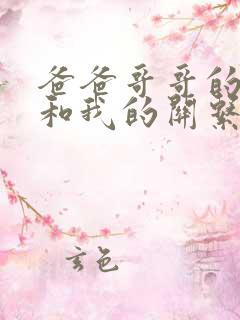 爸爸哥哥的
和我的関繫
玄色